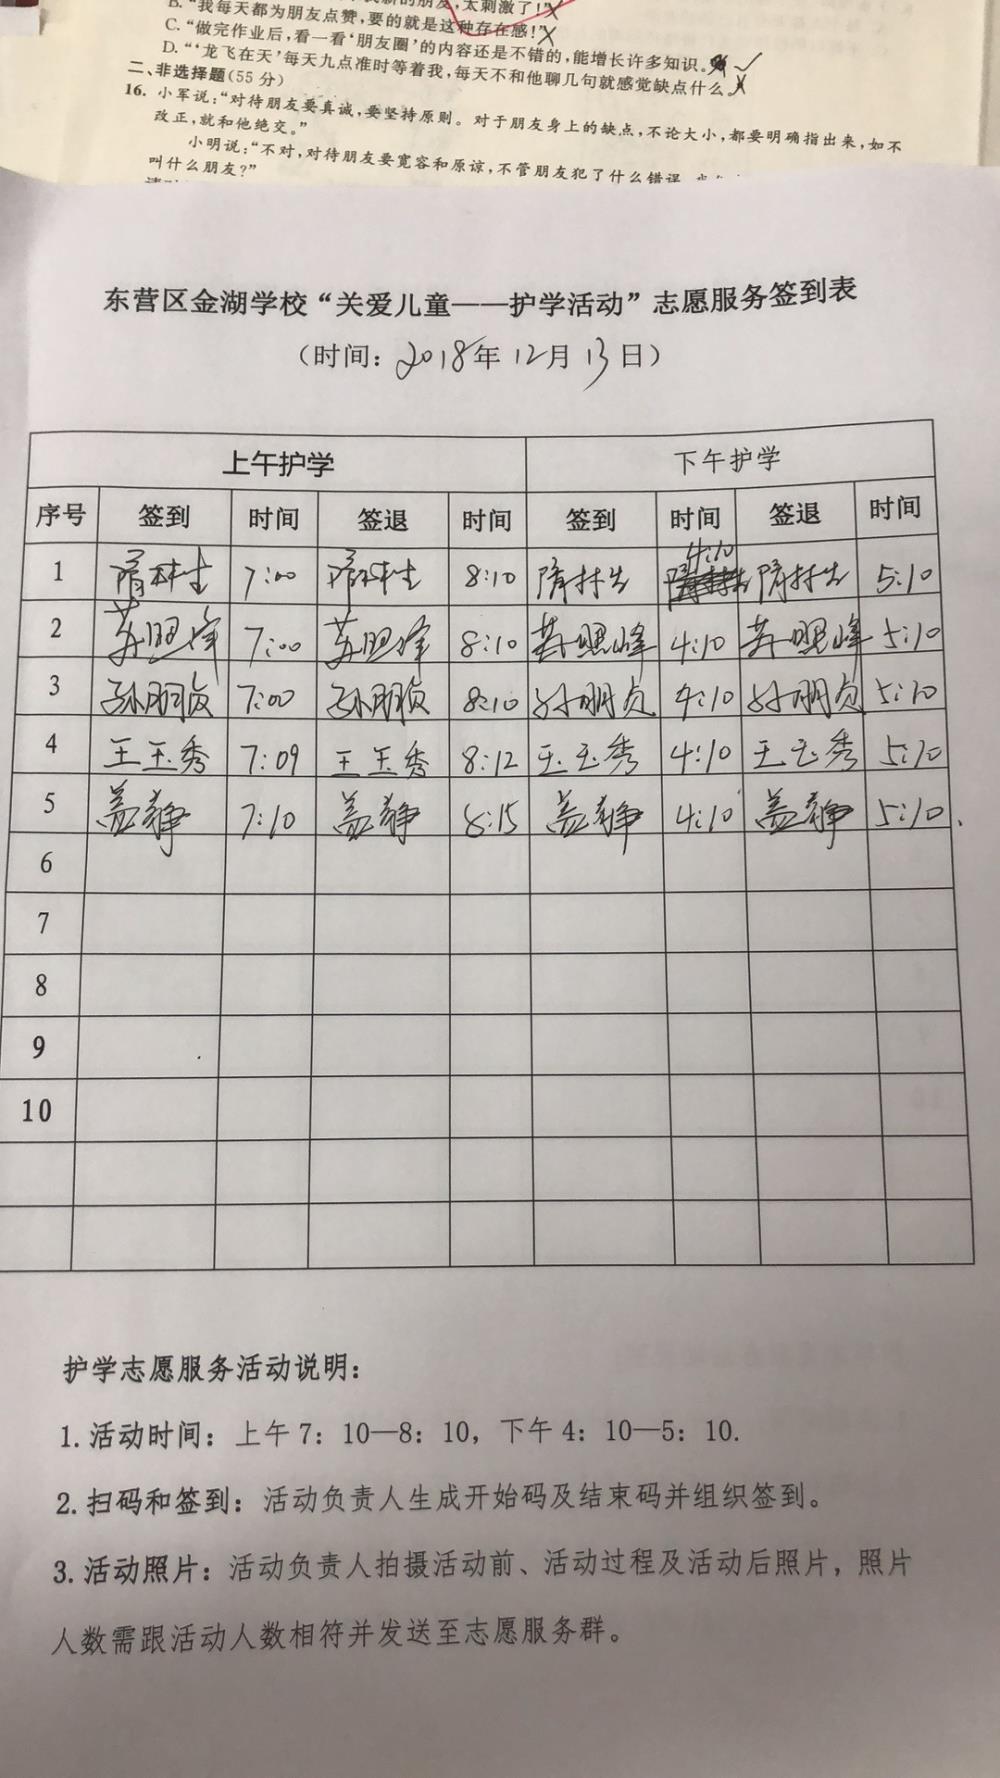 太刺激了！”
B.“我每天都为朋友点赞，要的就是这种存在感！”
C.“做完作业后，看一看‘朋友圈’的内容还是不错的，能增长许多知识。
D.“‘龙飞在天’每天九点准时等着我，每天不和他聊几句就感觉缺点什么。
二、非选择题(55 分)
16. 小军说：“对待朋友要真诚，要坚持原则。对于朋友身上的缺点，不论大小，都要明确指出来，如不
改正，就和他绝交。”
小明说：“不对，对待朋友要宽容和原谅，不管朋友犯了什么错误
叫什么朋友？”
东营区金湖学校“关爱儿童——护学活动”志愿服务签到表
（时间：2018年12月13日）
上午护学 下午护学
序号 签到 时间 签退 时间 签到 时间 签退 时间
4:10
1 隋林生 7:00 隋林生 8:10 隋林生 隋林生 5:10
2 苏照峰 7:00 苏照峰 8:10 苏照峰 4:10 苏照峰 5:10
3 孙朋贞 7:00 孙朋贞 8:10 孙朋贞 4:10 孙朋贞 5:10
4 王玉秀 7:09 王玉秀 8:12 王玉秀 4:10 王玉秀 5:10
5 盖静 7:10 盖静 8:15 盖静 4:10 盖静 5:10.
6
7
8
9
10
护学志愿服务活动说明：
1.活动时间：上午 7：10—8：10，下午 4：10—5：10.
2.扫码和签到：活动负责人生成开始码及结束码并组织签到。
3.活动照片：活动负责人拍摄活动前、活动过程及活动后照片，照片
人数需跟活动人数相符并发送至志愿服务群。